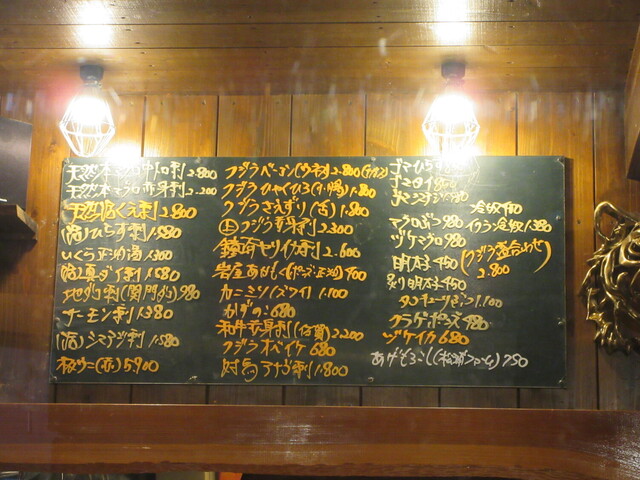 天然本マグロ中トロ刺 2.800
天然本マグロ赤身刺 2.200
天然 くえ刺 2.800
活ひらす刺 1.580
いくら正油漬 1.300
活真ダイ刺 1.580
地ダコ刺(関門) 980
サーモン刺 1.380
活シマアジ刺 1.580
板ウニ(赤) 5.900
クジラベーコン(ウネス) 2.800
クジラひゃくひろ(小腸) 1.800
クジラさえずり(舌) 1.800
上クジラ赤身刺 2300
ヤリイカ刺 2.600
700
カニミソ(ズワイ) 1.100
かずのこ 680
和牛赤身刺(佐賀) 2.200
クジラオバイケ 680
対馬アナゴ刺 1.800
ゴマひらす
ゴマタイ
冷奴 400
マグロぶつ 980
イクラ冷奴 1.380
ヅケマグロ 980
(クジラ盛合わせ 2.800)
明太子 450
炙り明太子 450
1.100
クラゲポンズ 480
ヅケイカ 680
あげそろばし(松浦ファーム) 750